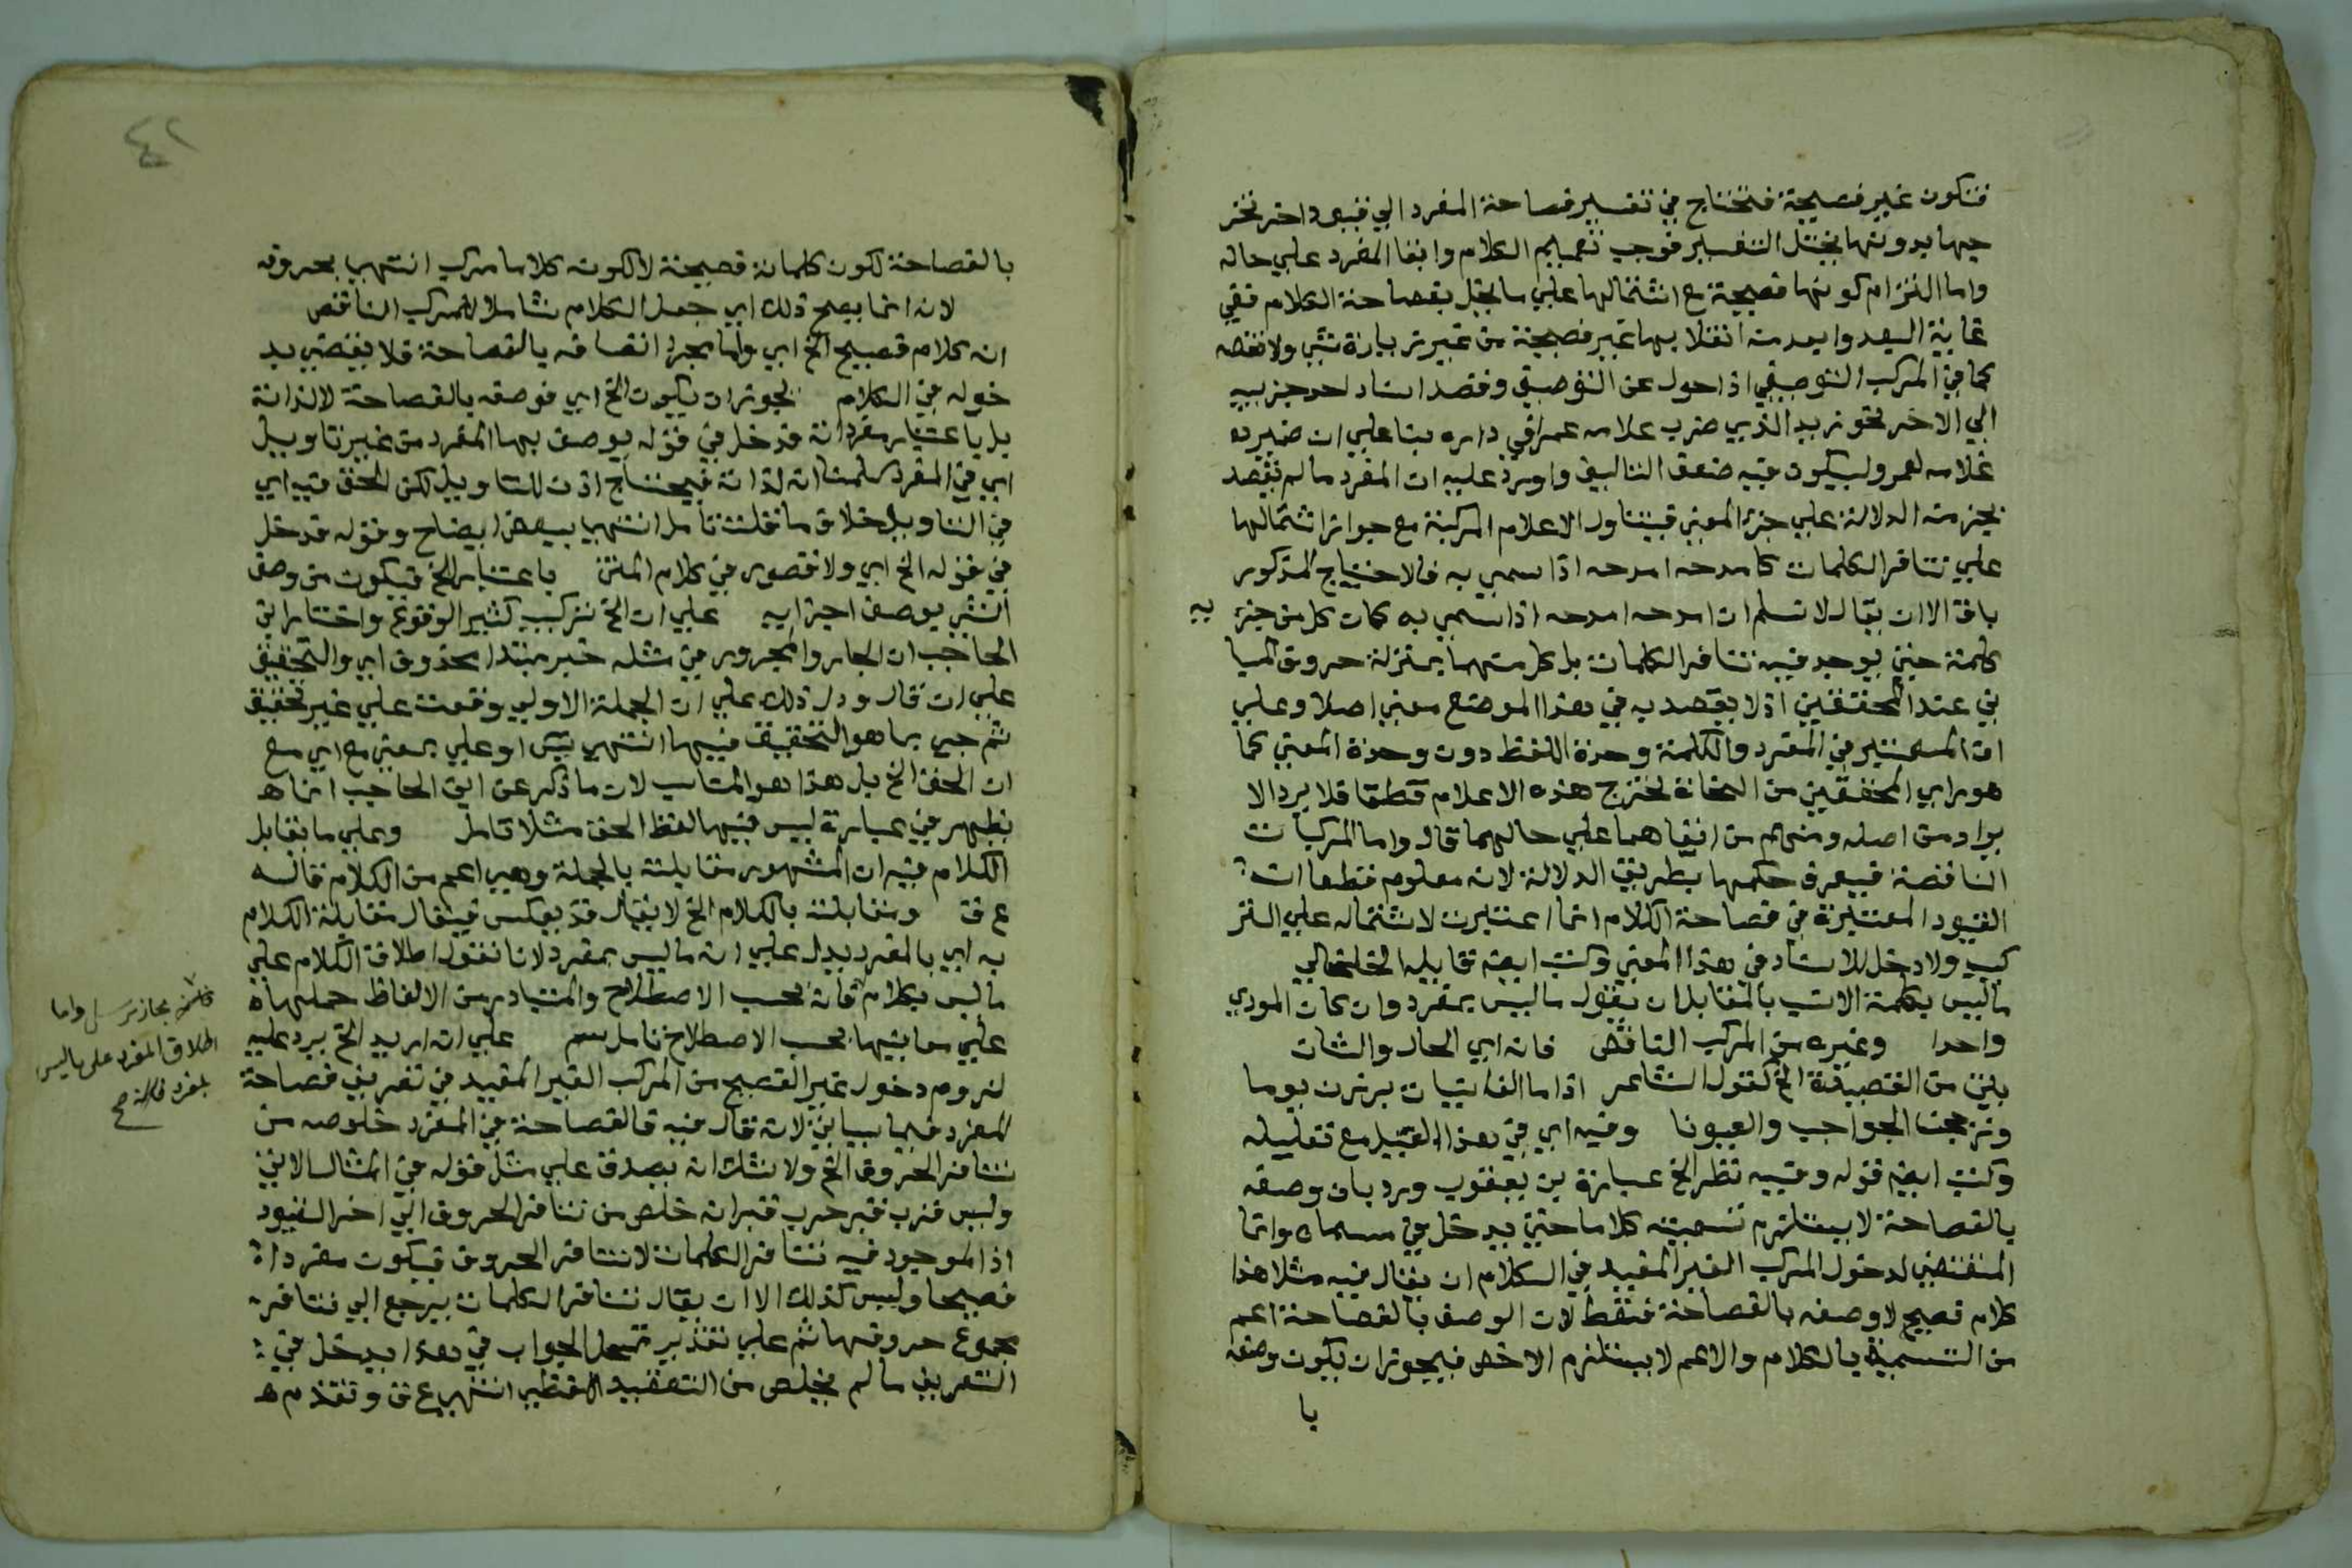 فتكون غير فصيحة فتحتاج في تفسير فصاحة المفرد الي قيود احترز
عنها بدونها يختل التفسير فوجب تعميم الكلام وابقا المفرد علي حاله
واما التزام كونها فصيحة مع اشتمالها علي ما يخل بفصاحة الكلام ففي
غاية البعد وابعد منه انقلابها غير فصيحة من غير زيادة شي ولا نقصه
كما في المركب التوصيفي اذا حول عن التوصيف وقصد اسناد احد جزييه
الي الاخر نحو زيد الذي ضرب غلامه عمرا في داره بنا علي ان ضمير
غلامه لعمرو ليكون فيه ضعف التاليف واورد عليه ان المفرد ما لم يقصد
بجزء منه الدلالة علي جزء المعني فيتناول الاعلام المركبة مع جواز اشتمالها
علي تنافر الكلمات كامدحه امدحه اذا سمي به فالاحتياج المذكور
باق الا ان يقال لا نسلم ان امدحه امدحه اذا سمي به كان كل من جزء
يه
كلمة حتي يوجد فيه تنافر الكلمات بل كل منهما بمنزلة حروف المبا
ني عند المحققين اذ لا يقصد به في هذا الموضع معني اصلا وعلي
ان المعتبر في المفرد والكلمة وحدة اللفظ دون وحدة المعني كما
هو راي المحققين من النحاة يخرج هذه الاعلام قطعا فلا يرد الا
يراد من اصله ومنهم من ابقاهما علي حالهما قال واما المركبات
الناقصة فيعرف حكمها بطريق الدلالة لانه معلوم قطعا ان
القيود المعتبرة في فصاحة الكلام انما اعتبرت لاشتماله علي التر
كيب ولا دخل للاسناد في هذا المعني وكتب ايضه
ما ليس بكلمة الانسب بالمقابل ان يقول ما ليس بمفرد وان كان المودي
واحدا وغيره من المركب الناقص فانه اي الحال والشان
بيت من القصيدة الخ كقول الشاعر اذا ما الغانيات برزن يوما
وزججن الحواجب والعيونا وفيه اي في هذا القيل مع تعليله
وكتب ايضه قوله وفيه نظر الخ عبارة بن يعقوب ورد بان وصفه
بالفصاحة لا يستلزم تسميته كلاما حتي يدخل في مسماه وانما
المقتضي لدخول المركب الغير المفيد في الكلام ان يقال فيه مثلا هذا
كلام فصيح لا وصفه بالفصاحة فقط لان الوصف بالفصاحة اعم
من التسمية بالكلام والاعم لا يستلزم الاخص فيجوز ان يكون وصفه
با
٤٢
بالفصاحة لكون كلماته فصيحة لا لكونه كلاما مركب انتهي بحروفه
لانه انما يصح ذلك اي جعل الكلام شاملا للمركب الناقص
انه كلام فصيح الخ اي واما مجرد اتصافه بالفصاحة فلا يقتضي يد
خوله في الكلام لجواز ان يكون الخ اي فوصفه بالفصاحة لا لذاته
بل باعتبار مفرداته قد خل في قوله يوصف بها المفرد من غير تاويل
اي في المفرد كلمتانه لذاته فيحتاج اذن للتاويل لكن الحق فيه اي
في التاويل خلاف ما نقلت تامل انتهي ببعض ايضاح وقوله قد خل
في قوله الخ اي ولا قصور في كلام المتن باعتبار الخ فيكون من وصف
الشي بوصف اجزايه علي ان الخ تركيب كثير الوقوع واختار ابن
الحاجب ان الجار والمجرور في مثله خبر مبتدا محذوف اي والتحقيق
علي ان قال ودل ذلك علي ان الجملة الاولي وقعت علي غير تحقيق
ثم جي بما هو التحقيق فيها انتهي يس او علي بمعني مع اي مع
ان الحق الخ بل هذا هو المناسب لان ما ذكر عن ابن الحاجب انما ه
يظهر في عبارة ليس فيها لفظ الحق مثلا تامل وعلي ما يقابل
الكلام فيه ان المشهور مقابلته بالجملة وهي اعم من الكلام قاله
ع ق ومقابلته بالكلام الخ لا يقال قد يعكس فيقال مقابلة الكلام
به اي بالمفرد يدل علي انه ما ليس بمفرد لانا نقول اطلاق الكلام علي
ما ليس بكلام فانه بحسب الاصطلاح والمتبادر من الالفاظ حملها ه
علي معانيها بحسب الاصطلاح تامل سم علي انه اريد الخ يرد عليه
لزوم دخول غير الفصيح من المركب الغير المفيد في تعريف فصاحة
المفرد فيما سياتي لانه قال فيه فالفصاحة في المفرد خلوصه من
تنافر الحروف الخ ولا شك انه يصدق علي مثل قوله في المثال الاتي
وليس قرب قبر حرب قبر انه خلص من تنافر الحروف الي اخر القيود
اذ الموجود فيه تنافر الكلمات لا تنافر الحروف فيكون مفردا
فصيحا وليس كذلك الا ان يقال تنافر الكلمات يرجع الي تنافر
مجموع حروفها ثم علي تقدير تمحل الجواب في هذا يدخل في
التعريف ما لم يخلص من التعقيد اللفظي انتهي ع ق وتقدم ه
مجاز مرسل واما
اطلاق المفرد علي ما ليس
بمفرد فانه صح